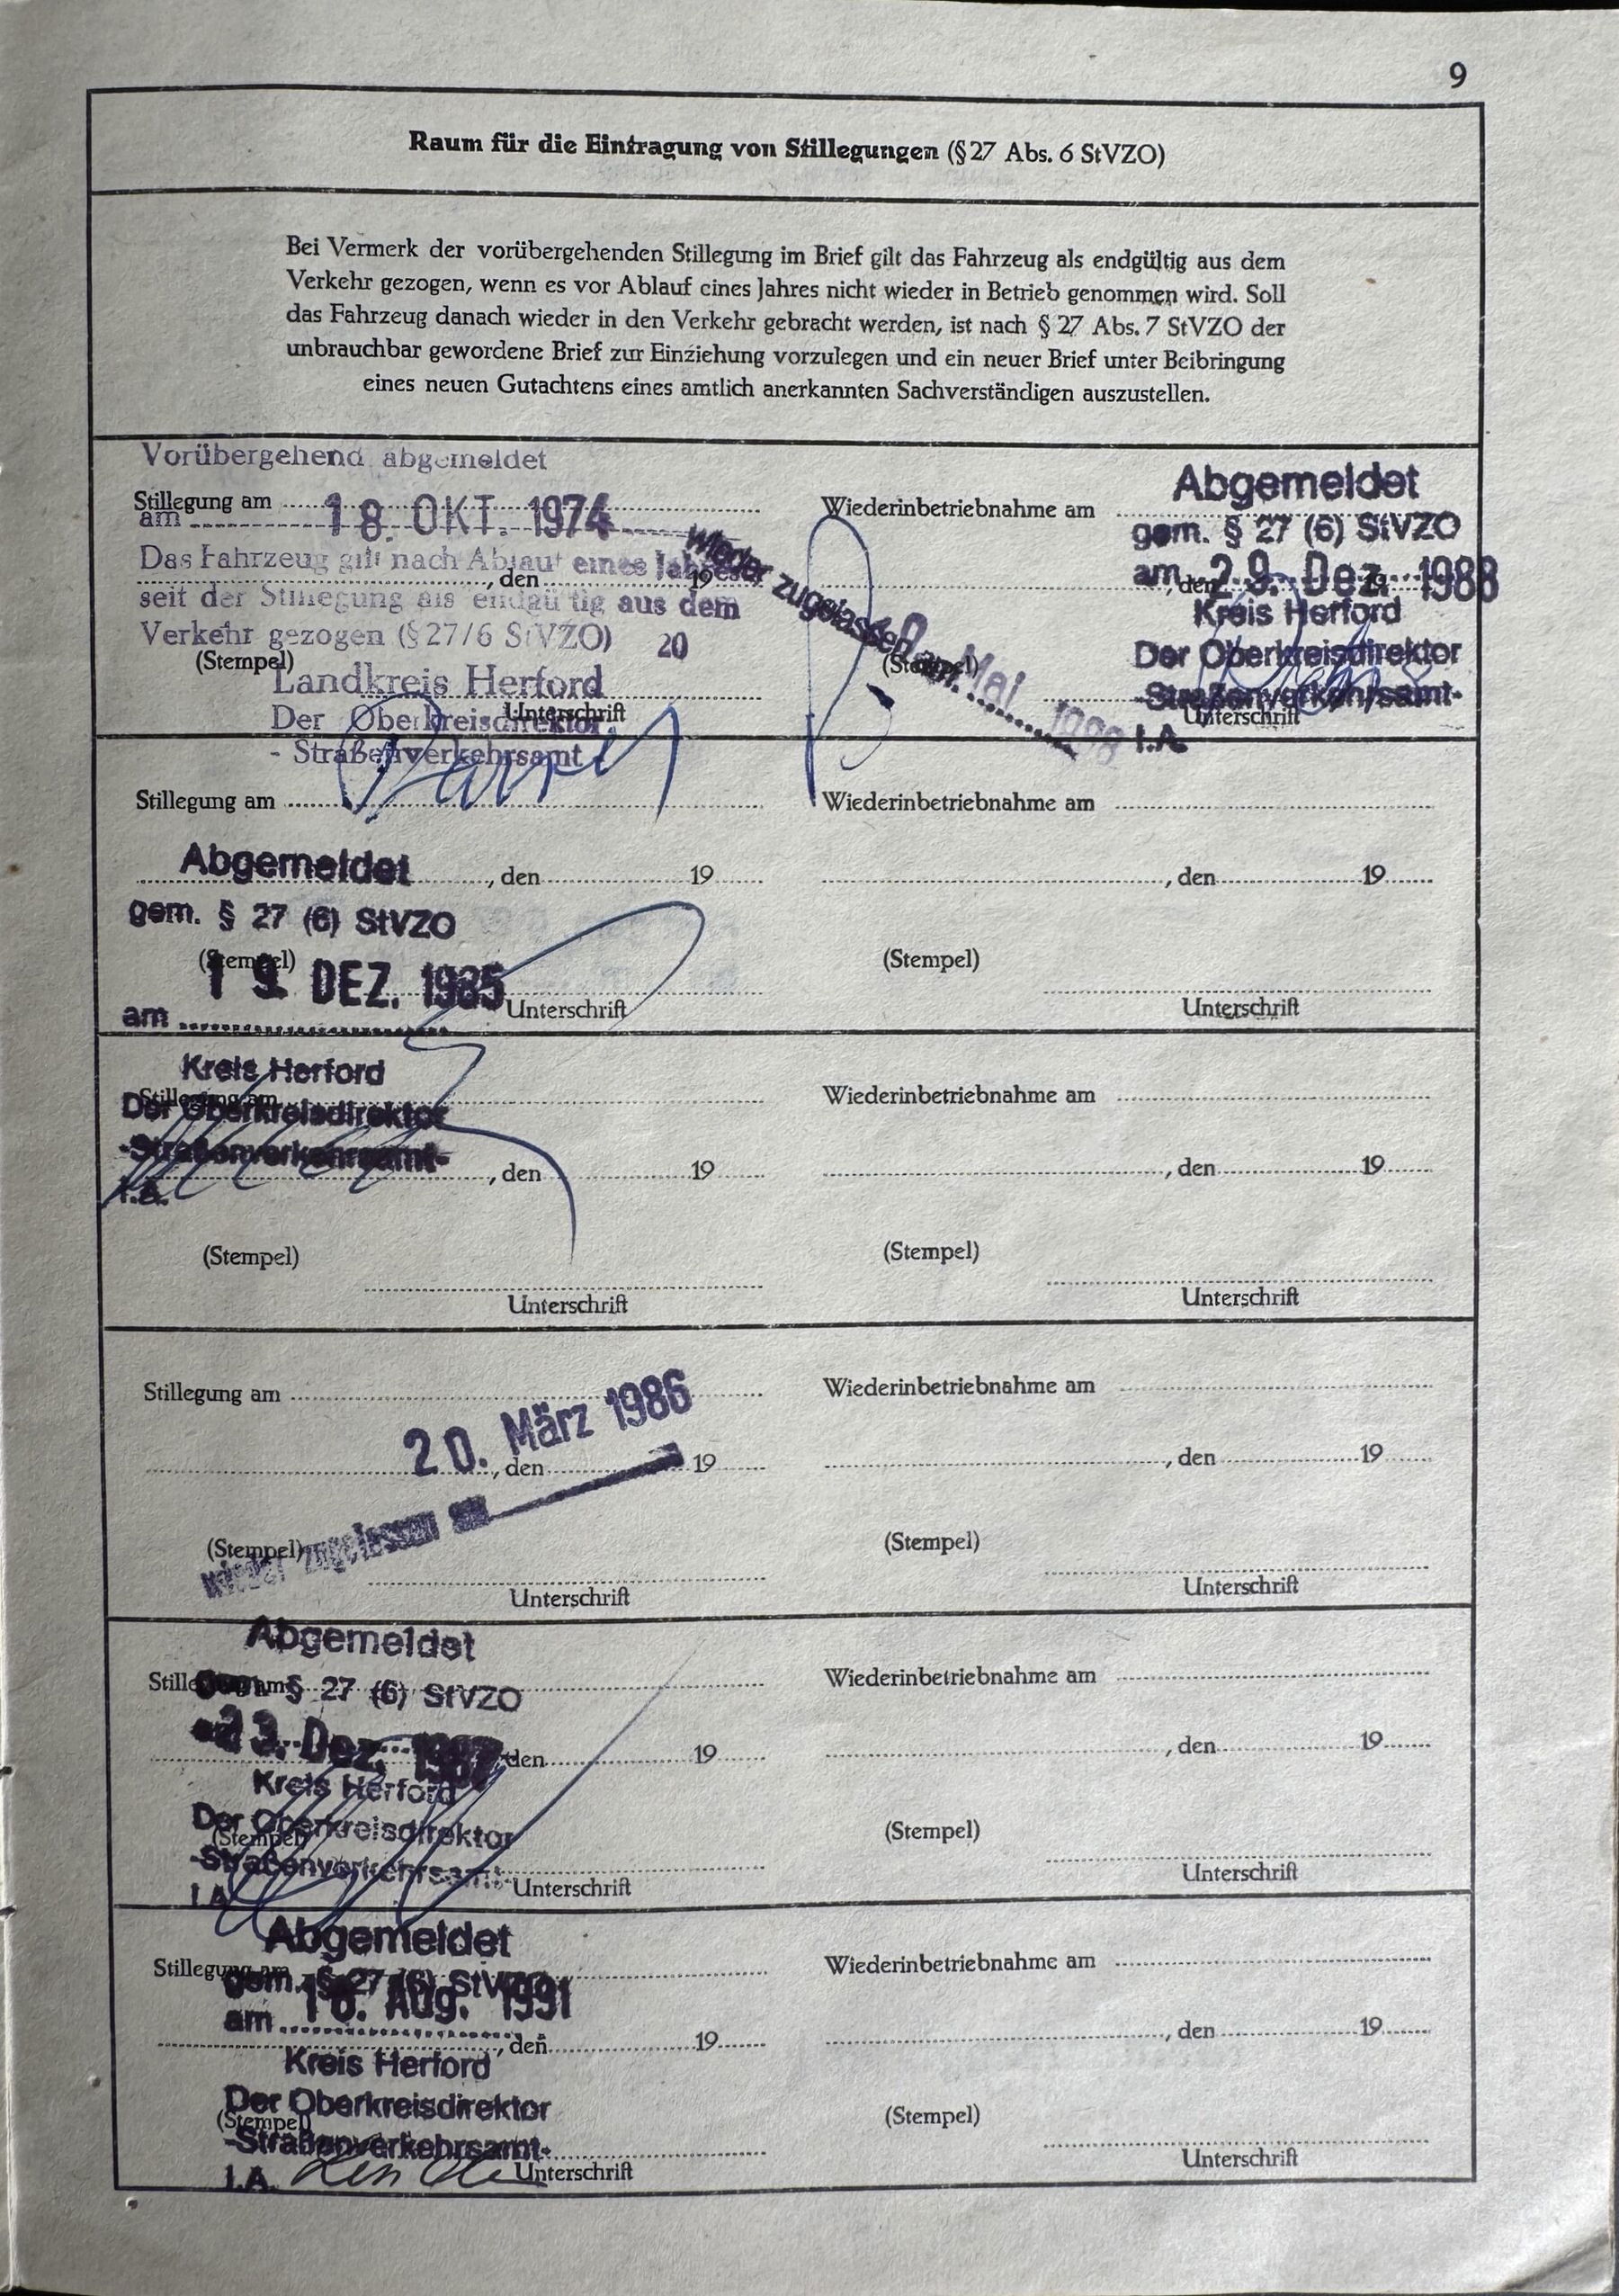 9
Raum für die Eintragung von Stillegungen (§ 27 Abs. 6 StVZO)
Bei Vermerk der vorübergehenden Stillegung im Brief gilt das Fahrzeug als endgültig aus dem
Verkehr gezogen, wenn es vor Ablauf eines Jahres nicht wieder in Betrieb genommen wird. Soll
das Fahrzeug danach wieder in den Verkehr gebracht werden, ist nach § 27 Abs. 7 StVZO der
unbrauchbar gewordene Brief zur Einziehung vorzulegen und ein neuer Brief unter Beibringung
eines neuen Gutachtens eines amtlich anerkannten Sachverständigen auszustellen.
Vorübergehend abgemeldet
Stillegung am
am 18. OKT. 1974
Das Fahrzeug gilt nach Ablauf eines Jahres
, den 19
seit der Stillegung als endgültig aus dem
Verkehr gezogen (§ 27/6 StVZO) 20
(Stempel)
Landkreis Herford
Der Oberkreisdirektor
Unterschrift
- Straßenverkehrsamt
Wiederinbetriebnahme am
wieder zugelassen am
Mai
(Stempel)
Abgemeldet
gem. § 27 (6) StVZO
am 29. Dez. 1988
, den
Kreis Herford
Der Oberkreisdirektor
-Straßenverkehrsamt-
Unterschrift
I.A.
Stillegung am
Wiederinbetriebnahme am
Abgemeldet
, den 19
, den 19
gem. § 27 (6) StVZO
(Stempel)
(Stempel)
19. DEZ. 1985
Unterschrift
Unterschrift
am
Kreis Herford
Stillegung am
Wiederinbetriebnahme am
Der Oberkreisdirektor
-Straßenverkehrsamt-
, den 19
, den 19
I.A.
(Stempel)
(Stempel)
Unterschrift
Unterschrift
Stillegung am
Wiederinbetriebnahme am
20. März 1986
, den 19
, den 19
wieder zugelassen am
(Stempel)
(Stempel)
Unterschrift
Unterschrift
Abgemeldet
Stillegung am
Wiederinbetriebnahme am
gem. § 27 (6) StVZO
Dez. 1987
den 19
, den 19
Kreis Herford
Der Oberkreisdirektor
(Stempel)
(Stempel)
-Straßenverkehrsamt-
Unterschrift
Unterschrift
I.A.
Abgemeldet
Stillegung am
Wiederinbetriebnahme am
gem. § 27 (6) StVZO
am Aug. 1991
, den 19
, den 19
Kreis Herford
Der Oberkreisdirektor
(Stempel)
(Stempel)
-Straßenverkehrsamt-
Unterschrift
Unterschrift
I.A.